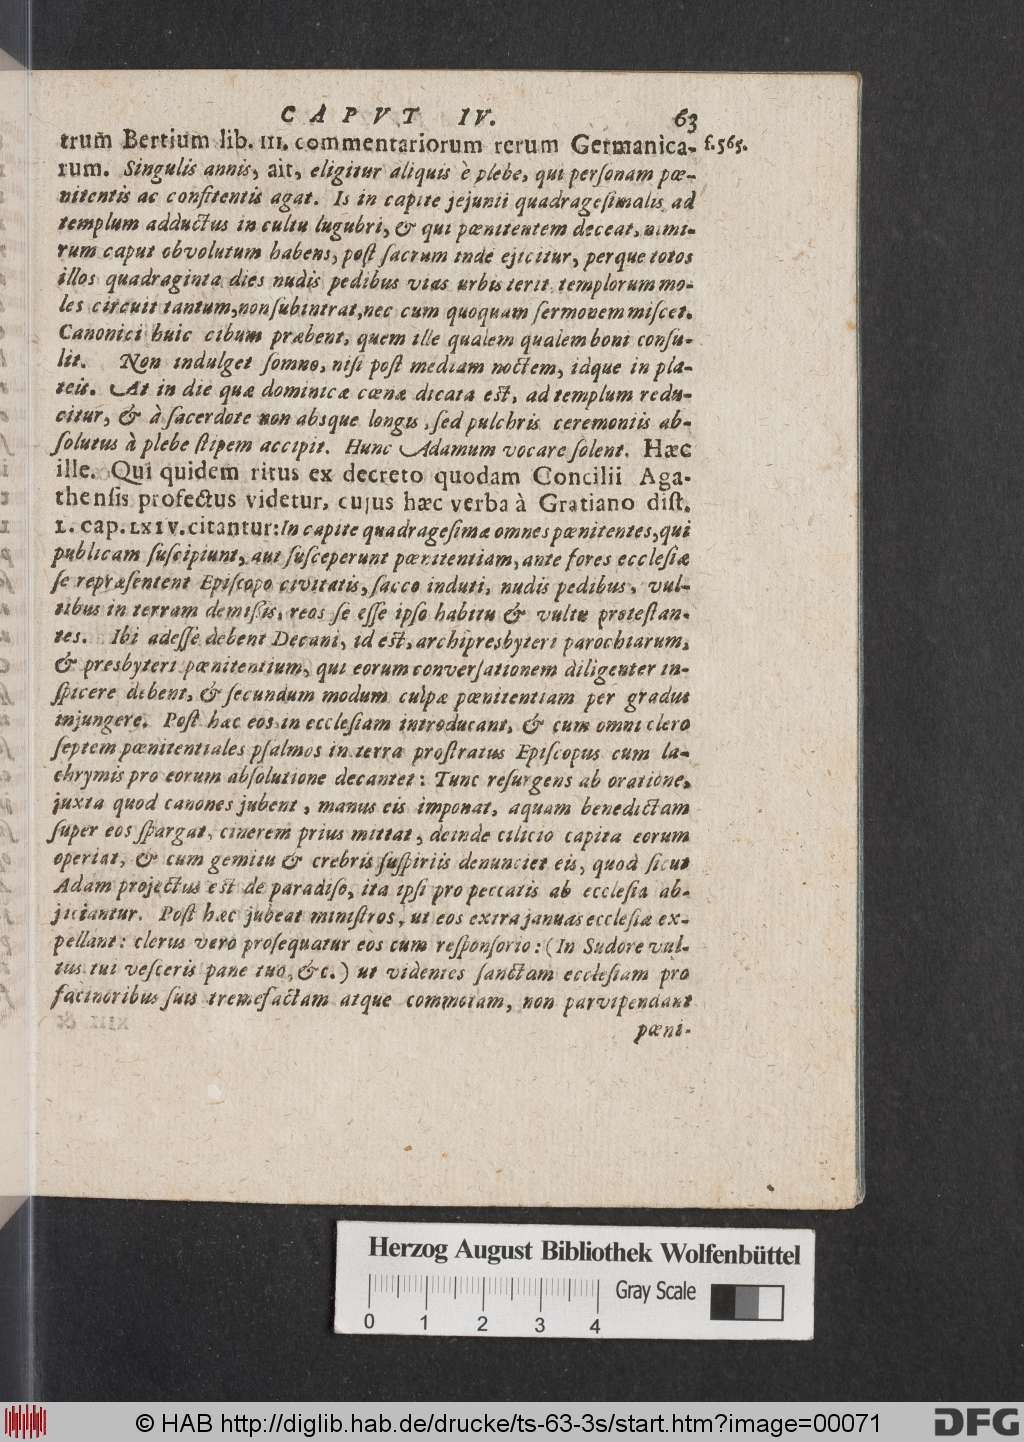 CAPVT IV. 63
trum̃ Bertium lib. III. commentariorum rerum Germanica- f. 565.
rum. Singulis annis, ait, eligitur aliquis è plebe, qui perſonam pœ-
nitentis ac confitentis agat. Is in capite jejunii quadrageſimalis ad
templum adductus in cultu lugubri, & qui pœnitentem deceat, nimi-
rum caput obvolutum habens, poſt ſacrum inde ejicitur, perque totos
illos quadraginta dies nudis pedibus vias urbis terit templorum mo-
les circuit tantum, non ſubintrat, nec cum quoquam ſermonem miſcet.
Canonici huic cibum præbent, quem ille qualem qualem boni conſu-
lit. Non indulget ſomno, niſi poſt mediam noctem, idque in pla-
teis. At in die quæ dominicæ cœnæ dicata eſt, ad templum redu-
citur, & à ſacerdote non absque longis, ſed pulchris ceremoniis ab-
ſolutus à plebe ſtipem accipit. Hunc Adamum vocare ſolent. Hæc
ille. Qui quidem ritus ex decreto quodam Concilii Aga-
thenſis profectus videtur, cujus hæc verba à Gratiano diſt.
L. cap. LXIV. citantur: In capite quadrageſimæ omnes pœnitentes, qui
publicam ſuſcipiunt, aut ſuſceperunt pœnitentiam, ante fores eccleſiæ
ſe repræſentent Epiſcopo civitatis, ſacco induti, nudis pedibus, vul-
tibus in terram demiſſis, reos ſe eſſe ipſo habitu & vultu proteſtan-
tes. Ibi adeſſe debent Decani, id eſt, archipresbyteri parochiarum,
& presbyteri pœnitentium, qui eorum converſationem diligenter in-
ſpicere debent, & ſecundum modum culpæ pœnitentiam per gradus
injungere. Poſt hæc eos in eccleſiam introducant, & cum omni clero
ſeptem pœnitentiales pſalmos in terra proſtratus Epiſcopus cum la-
chrymis pro eorum abſolutione decantet: Tunc reſurgens ab oratione,
juxta quod canones jubent, manus eis imponat, aquam benedictam
ſuper eos ſpargat, cinerem prius mittat, deinde cilicio capita eorum
operiat, & cum gemitu & crebris ſuſpiriis denunciet eis, quod ſicut
Adam projectus eſt de paradiſo, ita ipſi pro peccatis ab eccleſia ab-
jiciantur. Poſt hæc jubeat miniſtros, ut eos extra januas eccleſiæ ex-
pellant: clerus vero proſequatur eos cum reſponſorio: (In Sudore vul-
tus tui veſceris pane tuo, &c.) ut videntes ſanctam eccleſiam pro
facinoribus ſuis tremefactam atque commotam, non parvipendant
pœni-
Herzog August Bibliothek Wolfenbüttel
Gray Scale
0 1 2 3 4
© HAB http://diglib.hab.de/drucke/ts-63-3s/start.htm?image=00071
DFG